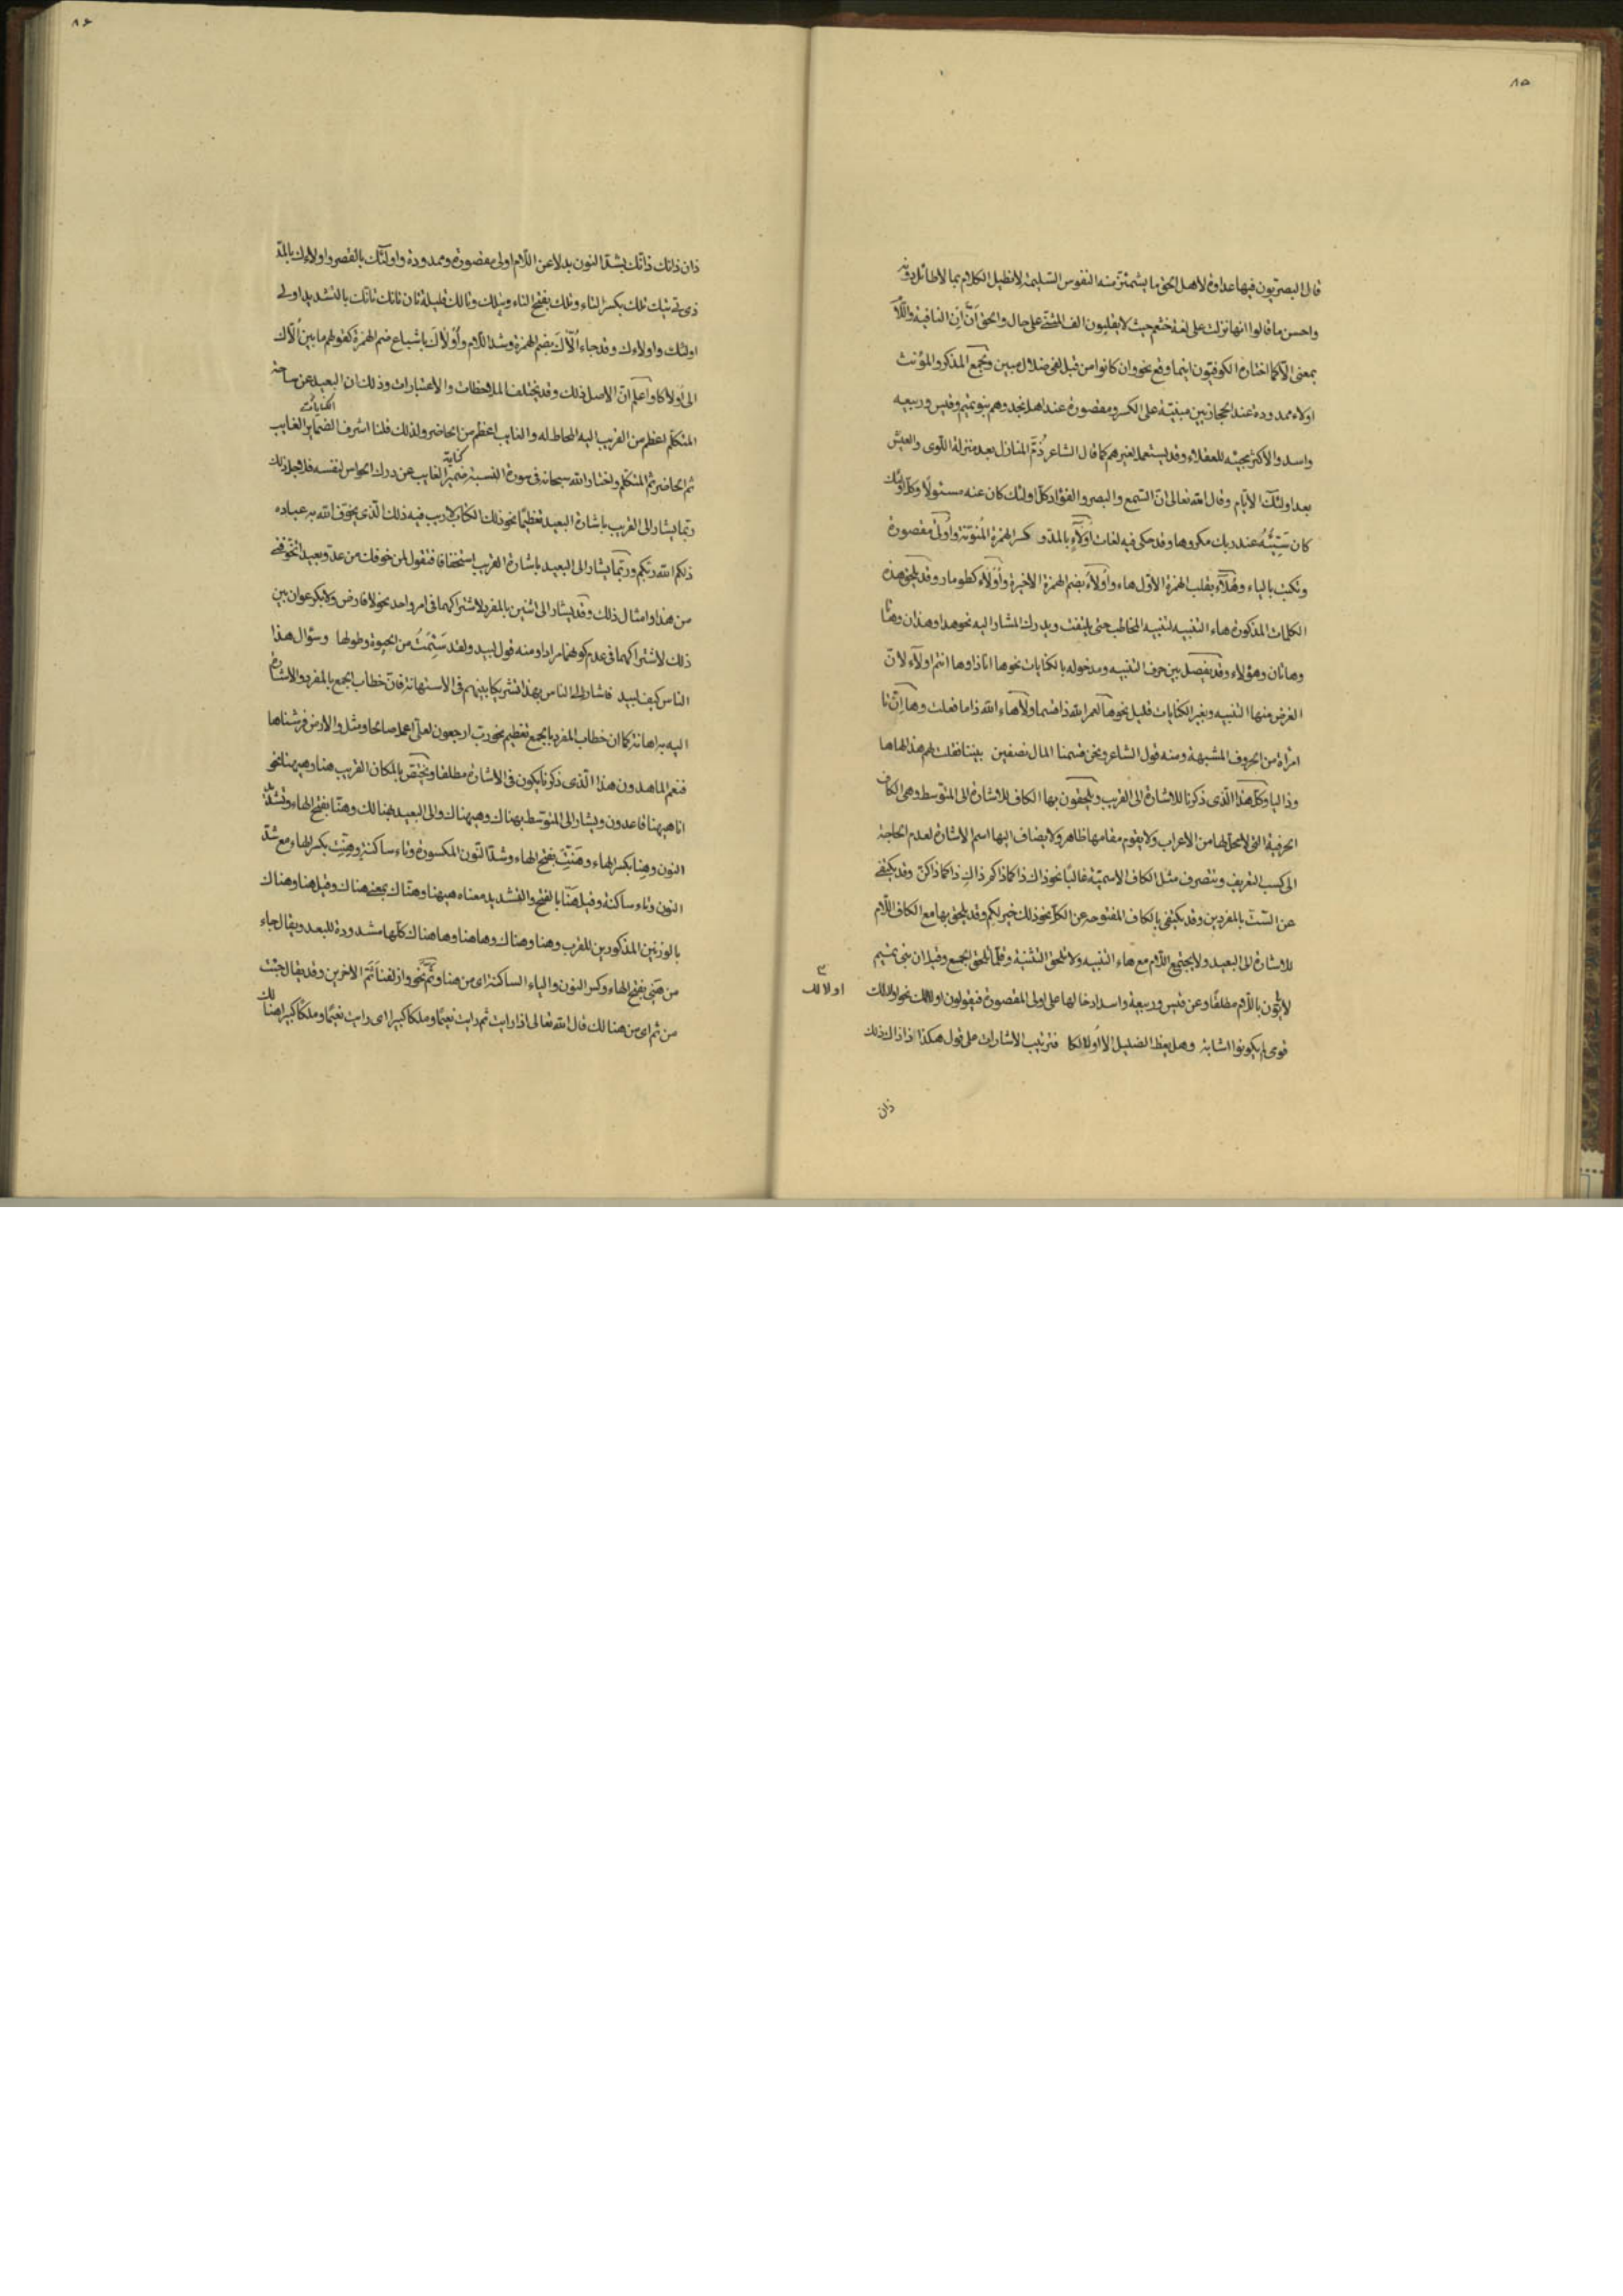 ٨٥
قال البصريون فيها عداوة لاهل الحق ما يشمئز منه النفوس السليمة لا نطيل الكلام بما لا طائل دونه
واحسن ما قالوا انها نزلت على لغة خثعم حيث لا يقلبون الف المثنى على حال والحق أنّ أنِ النافية واللام
بمعنى الّا كما اختاره الكوفيّون اينما وقع نحو وان كانوا من قبل لفى ضلال مبين ويجمع المذكر والمؤنث
اولاء ممدودة عند الحجازيين مبنيّة على الكسر ومقصورة عند اهل نجد وهم بنو تميم وقيس وربيعه
واسد والاكثر مجيئه للعقلاء وقد يستعمل لغيرهم كما قال الشاعر ذُمّ المنازل بعد منزلة اللوى والعيش
بعد اولئك الايام وقال الله تعالى انّ السّمع والبصر والفؤاد كلّ اولئك كان عنه مسئولًا وكلّ اولئك
كان سَيّئُهُ عند ربك مكروها وقد حكى فيه لغات اُولآءٍ بالمدّ و كسر الهمزة المُنوّنة واُولى مقصورة
وتكتب بالياء وهُلآء بقلب الهمزة الاوّل هاء واُولاءُ بضم الهمزة الاخيرة واُوْلاء كطومار وقد يلحق هذه
الكلمات المذكورة هاء التنبيه لتنبيه المخاطب حتى يلتفت ويدرك المشار اليه نحو هذا وهذان وهتا
وهاتان وهؤلاء وقد يفصل بين حرف التنبيه ومدخوله بالكنايات نحو ها انا ذا وها انتم اولآء لانّ
الغرض منها التنبيه وبغير الكنايات قليل نحو ها لعمر الله ذا قسما ولا هاء الله ذا ما فعلت وها اِنّ تا
امرأة من الحروف المشبهة ومنه قول الشاعر ونحن قسمنا المال نصفين بيننا فقلت لهم هذا لها ها
وذا ليا وكلّ هذا الّذى ذكرنا للاشارة الى القريب ويلحقون بها الكاف للاشارة الى المتوسط وهى الكاف
الحرفية التى لا محلّ لها من الاعراب ولا يقوم مقامها ظاهر ولا يضاف اليها اسم الاشارة لعدم الحاجة
الى كسب التعريف وتتصرف مثل الكاف الاسميّة غالبًا نحو ذاك ذاكما ذاكم ذاكِ ذاكما ذاكنّ وقد يكتفى
عن الستّ بالمفردين وقد يكتفى بالكاف المفتوحه عن الكلّ نحو ذلك خير لكم وقد يلحق بها مع الكاف اللّام
للاشارة الى البعيد ولا يجتمع اللّام مع هاء التنبيه ولا تلحق التثنية وقلّما تلحق الجمع وقيل ان بنى تميم
لا يأتون باللّام مطلقًا وعن قيس وربيعة واسد ادخالها على اولى المقصورة فيقولون اولالك نحو اولالك
اولالك
قومى لم يكونوا اشابة وهل يعظ الضليل الا اُولالكا فترتيب الاشارات على قول هكذا ذا ذاك ذلك
ذان
٨٦
ذان ذانك ذانّك بشدّ النون بدلا عن اللّام اولى مقصورة وممدودة واولئك بالقصر واولاءك بالمدّ
ذى تى تيك تلك بكسر التاء وتلك بفتح التاء وتيلك وتالك قليلة تان تانك تانّك بالتشديد اولى
اولئك واولاءك وقد جاء اُلّاكَ بضم الهمزة وشدّ اللّام واُوْلاكَ باشباع ضم الهمزة كقولهم ما بين اُلّاك
الى اُولاكا واعلم انّ الاصل ذلك وقد يختلف الملاحظات والاعتبارات وذلك ان البعيد عن ساحة
المتكلّم اعظم من القريب اليه المخاطب له والغايب اعظم من الحاضر ولذلك قلنا اشرف الضماير الغايب
الكنايات
ثم الحاضر ثم المتكلّم واختار الله سبحانه فى سورة النسبة ضمير الغايب عن درك الحواس لنفسه فلاجل ذلك
كناية
ربّما يشار الى القريب باشارة البعيد تعظيمًا نحو ذلك الكتاب لا ريب فيه ذلك الّذى يخوّف الله به عباده
ذلكم الله ربّكم وربّما يشار الى البعيد باشارة القريب استحقاقا فتقول لمن خوفك من عدوّ بعيد اتخوّفنى
من هذا وامثال ذلك وقد يشار الى اثنين بالمفرد لاشتراكهما فى امر واحد نحو لا فارض ولا بكر عوان بين
ذلك لاشتراكهما فى عدم كونهما مرادا ومنه قول لبيد ولقد سَئِمتُ من الحيوة وطولها وسؤال هذا
الناس كيف لبيد فاشار الى الناس بهذا تشريكا بينهم فى الاستهانة فانّ خطاب الجمع بالمفرد والاشارة
اليه به اهانة كما ان خطاب المفرد بالجمع تعظيم نحو ربّ ارجعون لعلّى اعمل صالحا ومثل والارض فرشناها
فنعم الماهدون هذا الّذى ذكرنا يكون فى الاشارة مطلقا ويختصّ بالمكان القريب هنا وهيهنا نحو
انا هيهنا قاعدون ويشار الى المتوسّط بهناك وهيهناك والى البعيد هنالك وهنّا بفتح الهاء وتشديد
النون وهِنا بكسر الهاء وهَنِّتْ بفتح الهاء وشدّ النّون المكسورة وتاء ساكنة وهِنِّت بكسر الهاء مع شدّ
النون وتاء ساكنة وقيل هَنّا بالفتح والتشديد معناه هيهنا وهنّاك بمعنى هناك وقيل هنا وهناك
بالوزنين المذكورين للقرب وهنا وهناك وها هنا وها هناك كلّها مشدودة للبعد ويقال جاء
من هَنِى بفتح الهاء وكسر النون والياء الساكنة اى من هنا وثَمّ نحو وازلفنا ثَمّ الاخرين وقد يقال جئت
من ثم اى من هنالك قال الله تعالى اذا رايت ثم رايت نعيمًا وملكًا كبيرا اى رايت نعيمًا وملكًا كبيرا هنالك